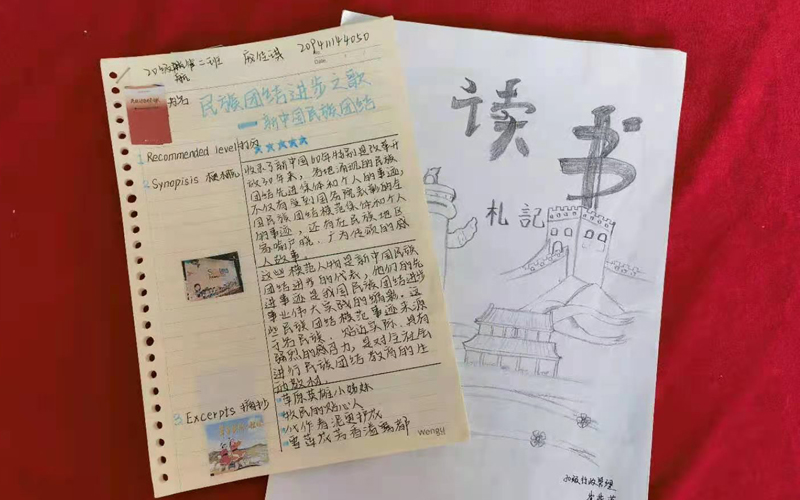 20级 第二班 20941144050
书名
民族团结进步之歌
新中国民族团结
1 Recommended level
★★★★★
2 Synopisis 梗概
收录了新中国60年特别是改革开
放30年来，各地涌现的民族
团结先进集体和个人的事迹，
不仅有受到国务院表彰的全
国民族团结模范集体和个人
的事迹，还有在民族地区
家喻户晓、广为传颂的感
人故事。
这些模范人物是新中国民族
团结进步的代表，他们的先
进事迹是我国民族团结进步
事业伟大实践的缩影。这
些民族团结模范事迹来源
于各民族，贴近实际，具有
强烈的感召力，是对全社会
进行民族团结教育的生
动教材。
3 Excerpts 摘抄
草原英雄小姊妹
牧民的贴心人
Wengu
读书
札記